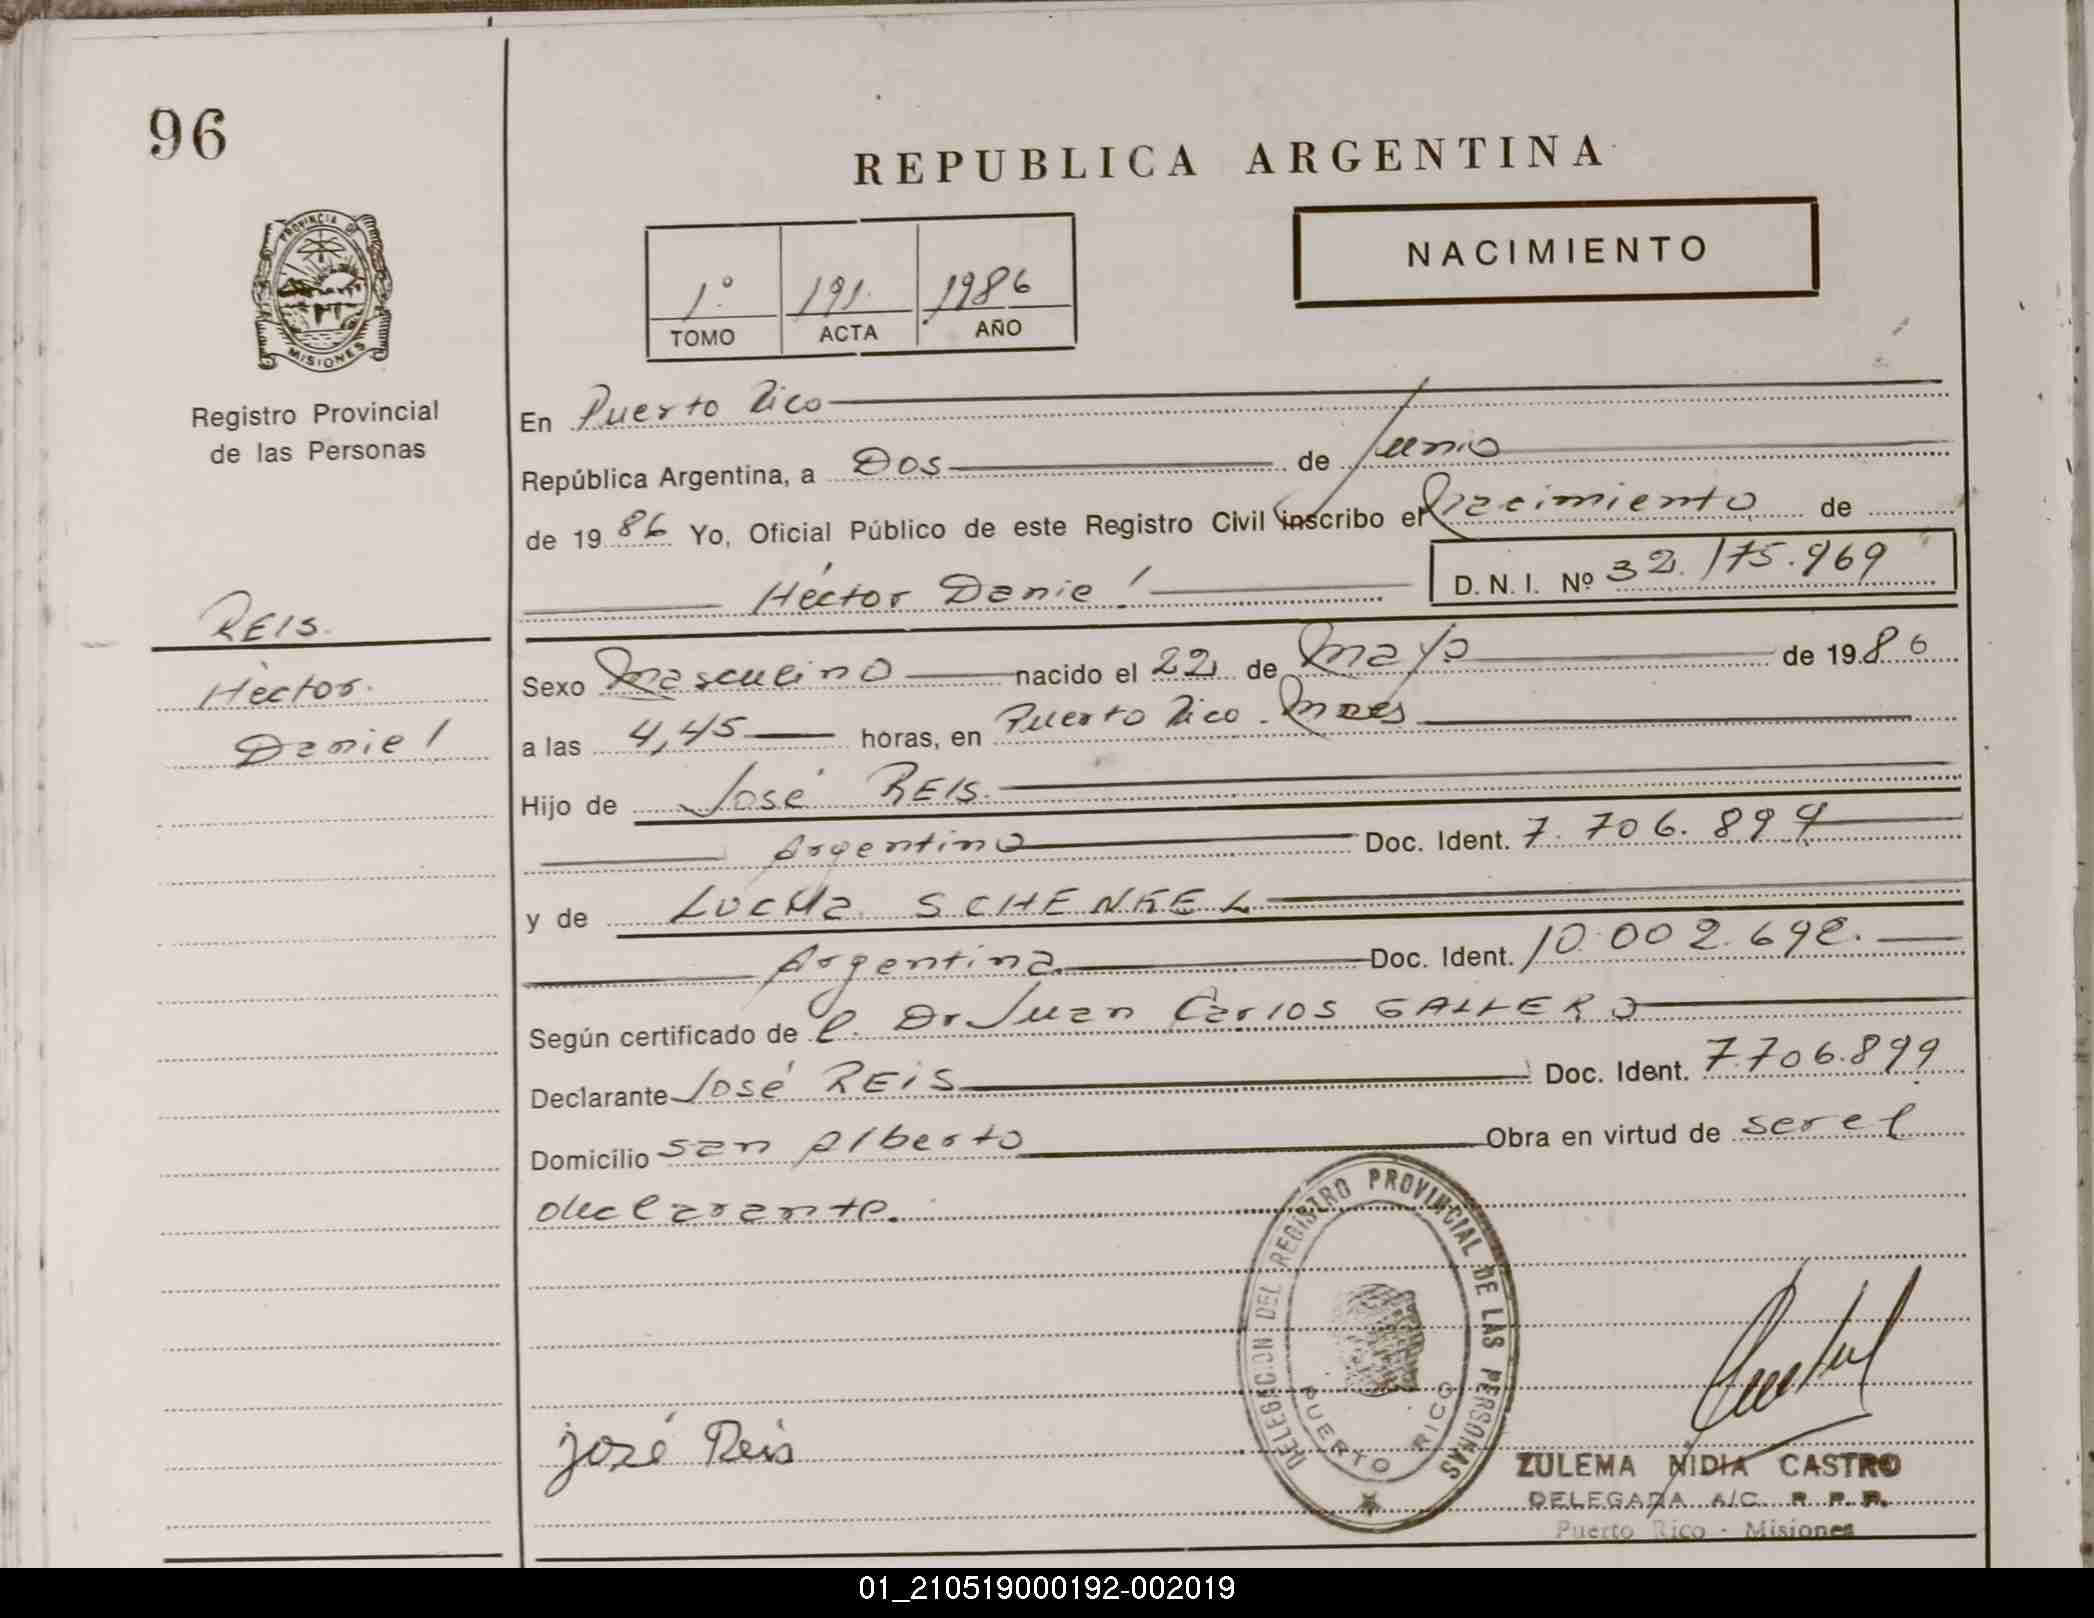 96
REPUBLICA ARGENTINA
PROVINCIA DE
MISIONES
Registro Provincial
de las Personas
1º 191. 1986
TOMO ACTA AÑO
NACIMIENTO
En Puerto Rico
República Argentina, a Dos de Junio
de 1986 Yo, Oficial Público de este Registro Civil inscribo el Nacimiento de
Héctor Daniel D.N.I. Nº 32.175.969
REIS.
Héctor.
Daniel
Sexo Masculino nacido el 22 de Mayo de 1986
a las 4,45 horas, en Puerto Rico. Mnes
Hijo de José REIS.
Argentino Doc. Ident. 7.706.899
y de SCHENKEL
Argentina Doc. Ident. 10.002.692.
Según certificado de l. Dr Juan Carlos GALLERO
Declarante José REIS Doc. Ident. 7.706.899
Domicilio san Alberto Obra en virtud de ser el
declarante.
DELEGACION DEL REGISTRO PROVINCIAL DE LAS PERSONAS
PUERTO RICO
José Reis
ZULEMA NIDIA CASTRO
DELEGADA A/C. R. P. P.
Puerto Rico - Misiones
01_210519000192-002019